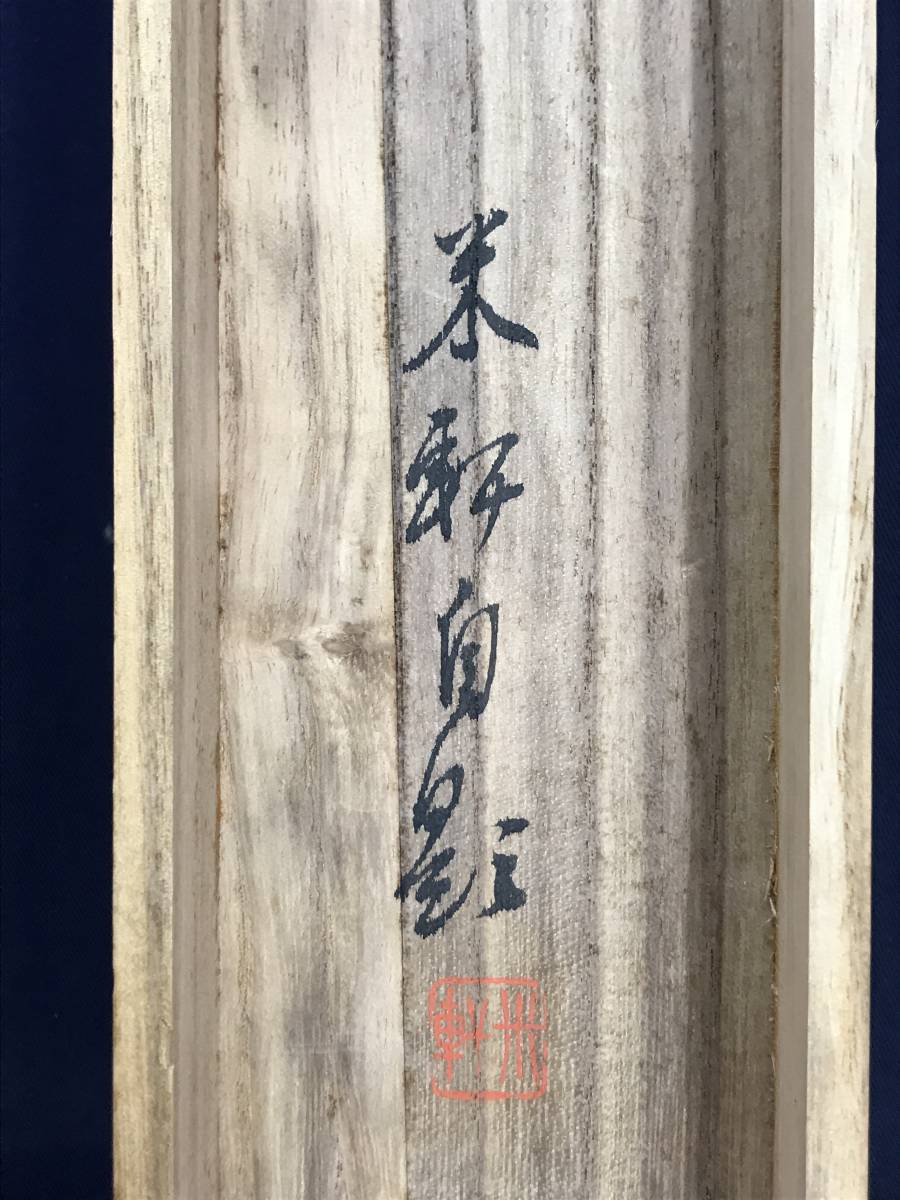 米軒自題
米軒